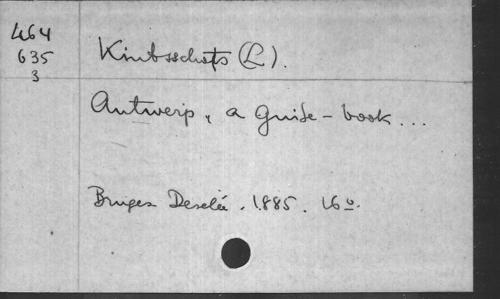 464
635
3
Kintsschots (L).
Antwerp, a Guide-book ...
Bruges Desclée. 1885. 16º.